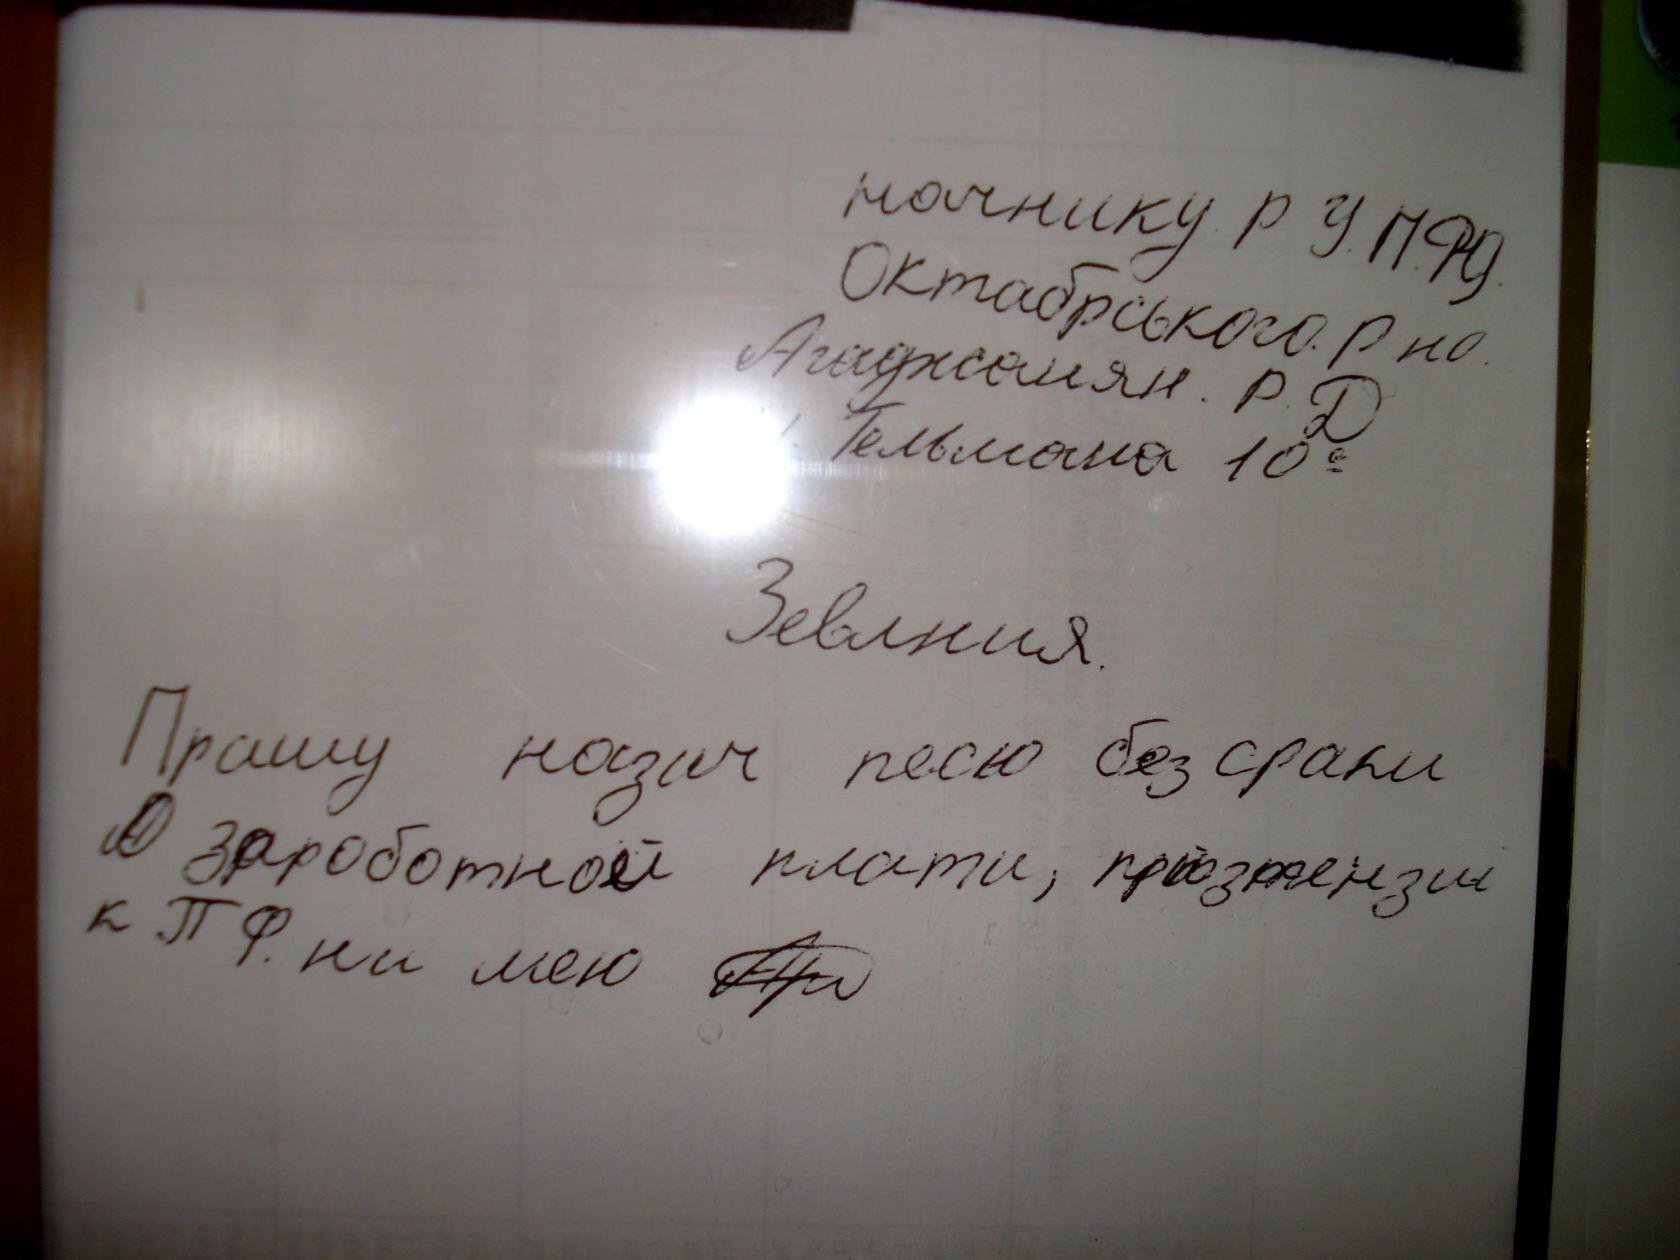 начнику. Р У. П.Ф.
Октабрського. Р на.
Агаджамян. Р. Д
Тельмана 10а
Зевлния.
Прашу назич песю без сраки
О заработной плати, призтензии
к ПФ. ни мею